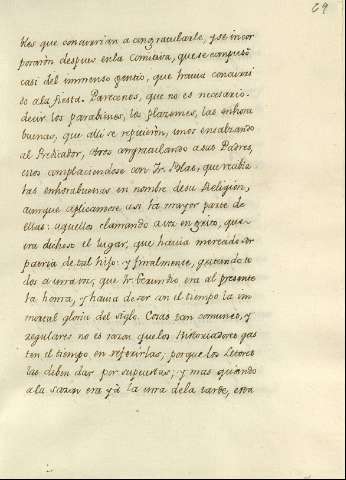 69
bles que concurrian a congratularle, y se incor
poraron despues en la comitiva, que se compuso
casi del immenso gentio, que havia concurri
do a la fiesta. Parecenos, que no es necesario
decir los parabienes, los plazemes, las enhora
buenas, que alli se repitieron, unos ensalzando
al Predicador, otros congraciandose a sus Padres,
estos complaciendose con Fr. Blas, que recibia
las enhorabuenas en nombre de su Religion,
aunque aplicandose a si la mayor parte de
ellas: aquellos clamando a voz en grito, que
era dichoso el lugar, que havia merecido ser
patria de tal hijo: y finalmente, gritando to
dos a una voz, que Fr. Gerundio era al presente
la honra, y havia de ser con el tiempo la im
mortal gloria del siglo. Cosas tan comunes, y
regulares no es razon que los Historiadores gas
ten el tiempo en referirlas; porque los Letores
las deben dar por supuestas; y mas quando
a la sazon era yà la una de la tarde, esta